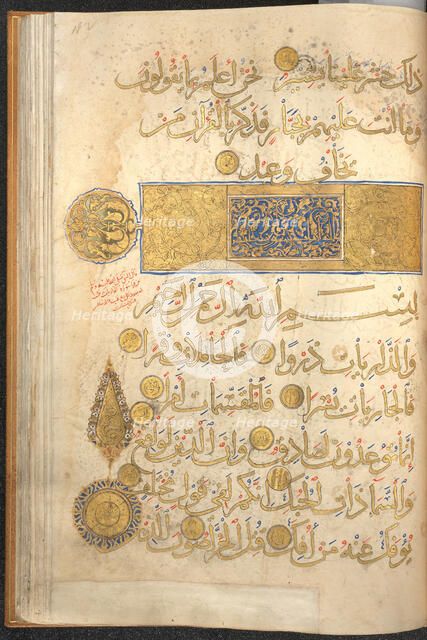 ذلك حشر علينا يسير نحن أعلم بما يقولون
وما أنت عليهم بجبار فذكر بالقران من
يخاف وعيد
بسم الله الرحمن الرحيم
والذاريات ذروا فالحاملات وقرا
فالجاريات يسرا فالمقسمات أمرا
إنما توعدون لصادق وإن الدين لواقع
والسماء ذات الحبك إنكم لفي قول مختلف
يؤفك عنه من أفك قتل الخراصون الذين